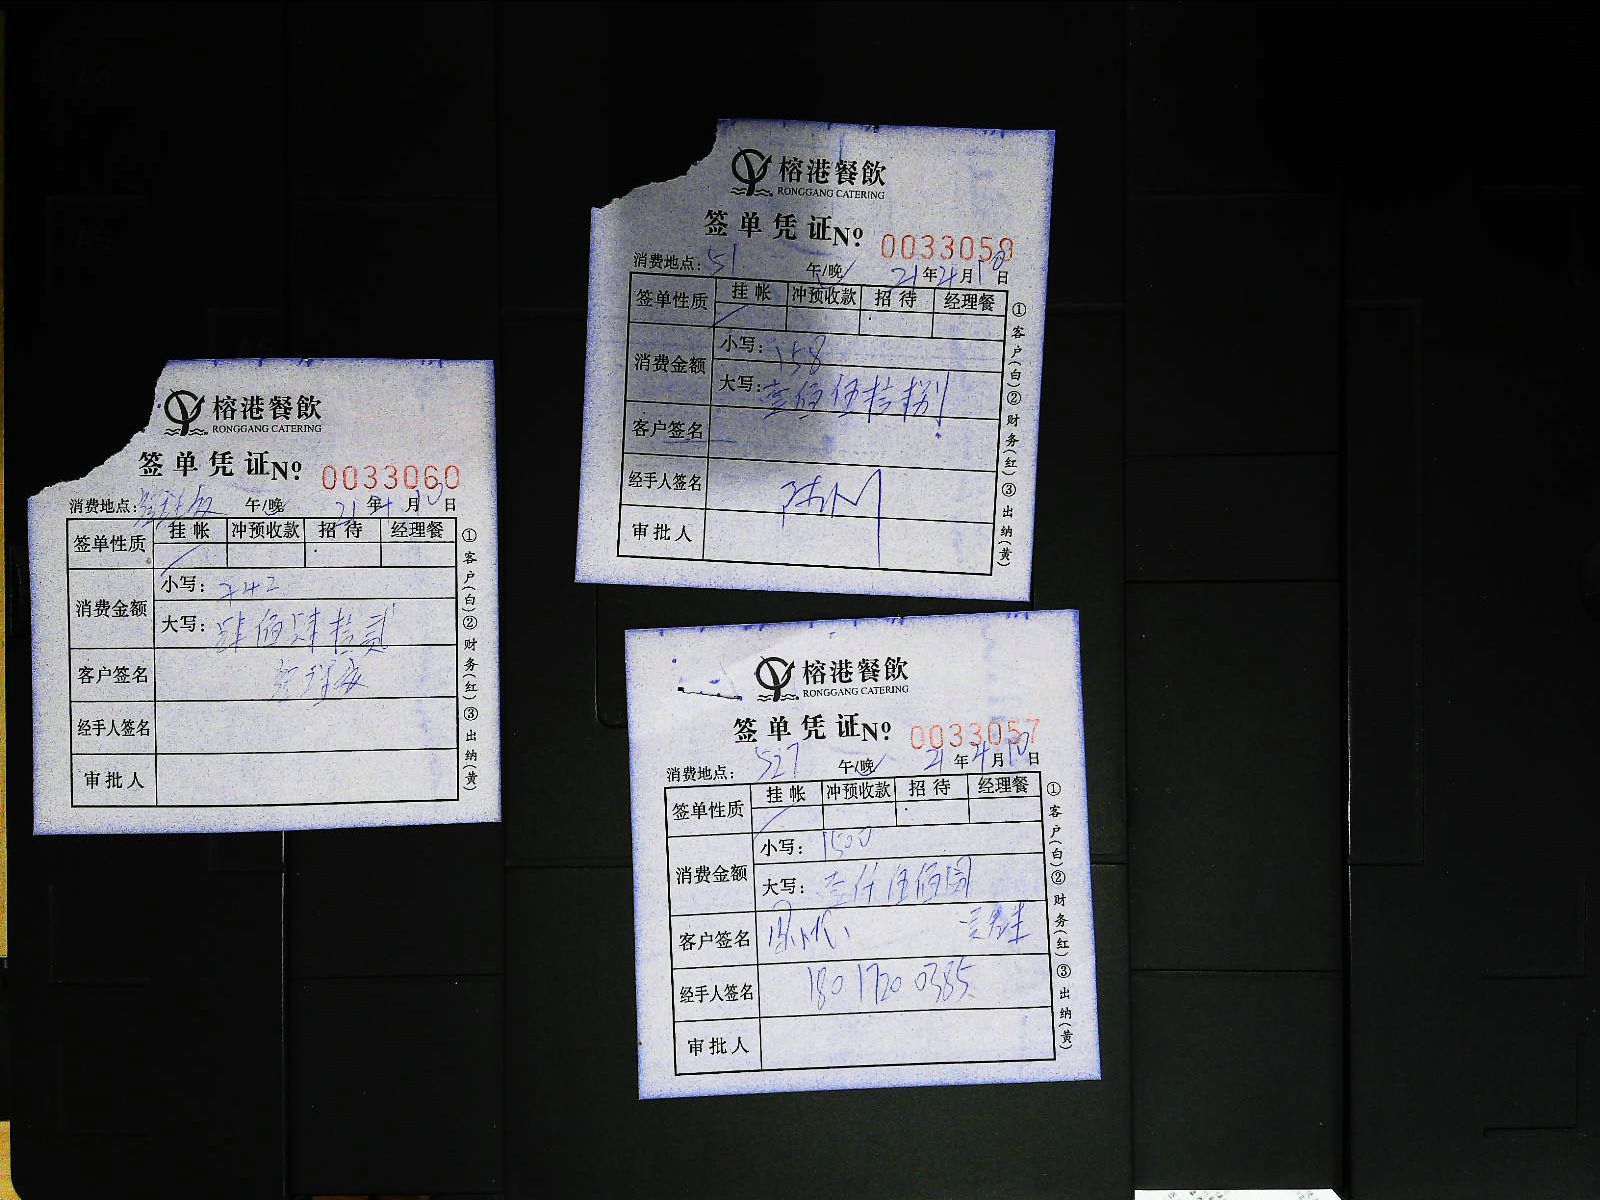 榕港餐飲
RONGGANG CATERING
签单凭证№ 0033060
消费地点: 午/晚 21年4月10日
签单性质 挂帐 冲预收款 招待 经理餐
消费金额 小写: 442
大写: 肆佰肆拾贰
客户签名
经手人签名
审批人
①客户(白)②财务(红)③出纳(黄)
榕港餐飲
RONGGANG CATERING
签单凭证№ 0033059
消费地点: 51 午/晚 21年4月10日
签单性质 挂帐 冲预收款 招待 经理餐
消费金额 小写: 158
大写: 壹佰伍拾捌
客户签名
经手人签名
审批人
①客户(白)②财务(红)③出纳(黄)
榕港餐飲
RONGGANG CATERING
签单凭证№ 0033057
消费地点: 527 午/晚 21年4月10日
签单性质 挂帐 冲预收款 招待 经理餐
消费金额 小写: 1500
大写: 壹仟伍佰圆
客户签名
经手人签名 180 1720 0385
审批人
①客户(白)②财务(红)③出纳(黄)